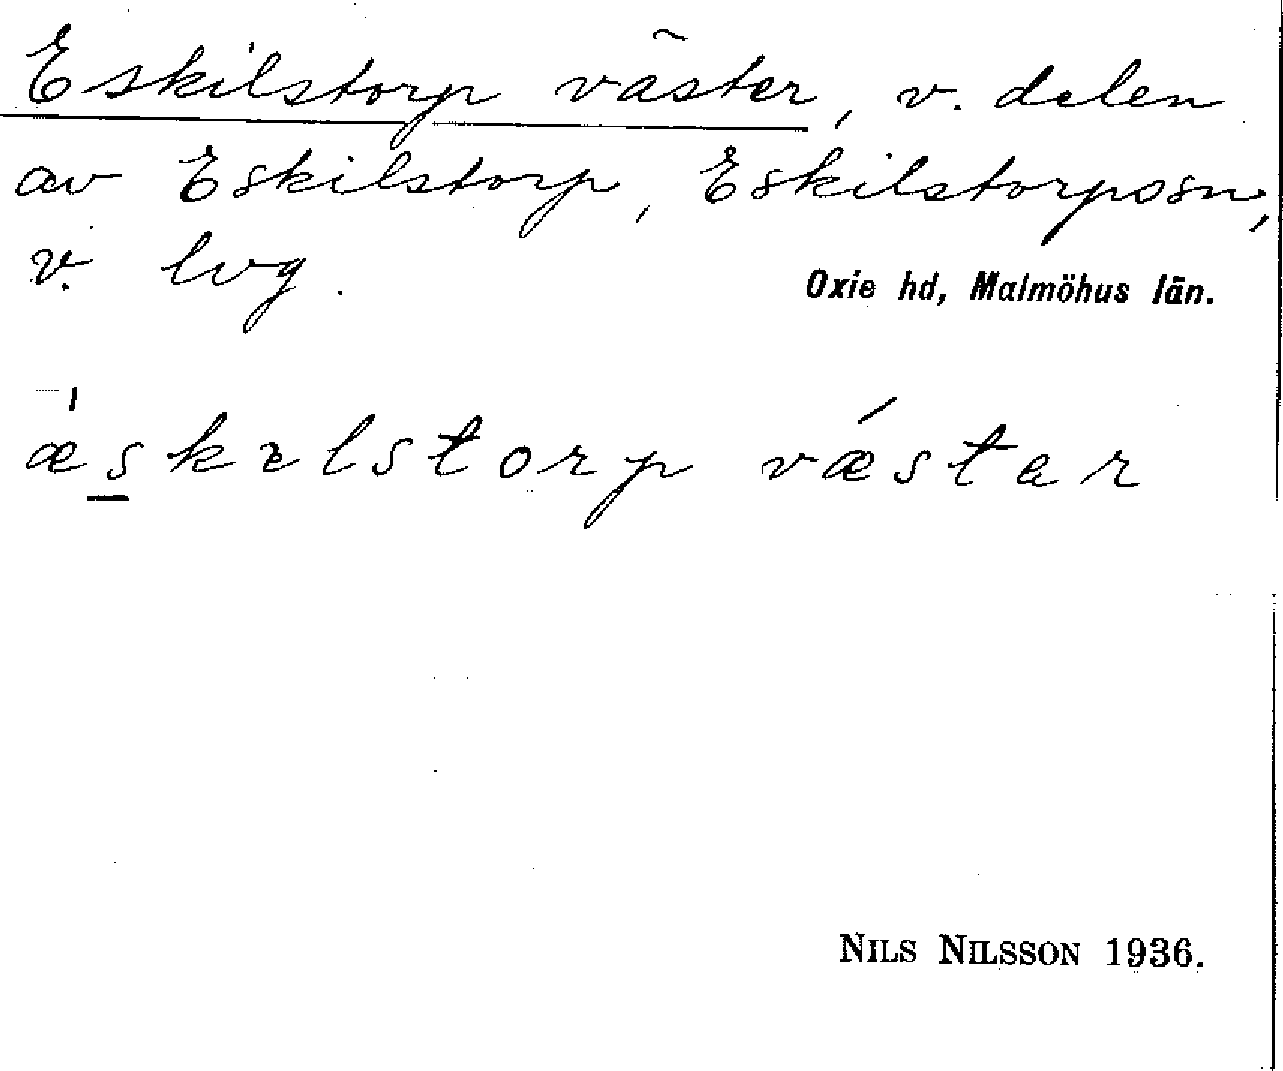 Eskilstorp väster, v. delen
av Eskilstorp, Eskilstorpssn,
v. lvg.
Oxie hd, Malmöhus län.
æskɪlstorp væstar
NILS NILSSON 1936.